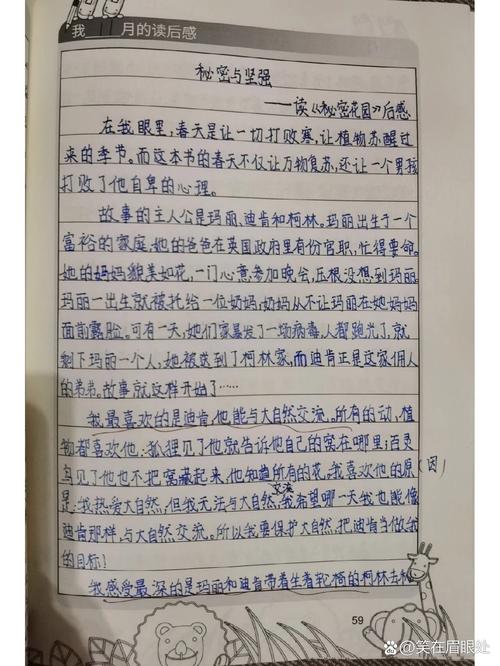 我 月的读后感
秘密与坚强
——读《秘密花园》后感
在我眼里,春天是让一切打败寒,让植物苏醒过
来的季节。而这本书的春天不仅让万物复苏,还让一个男孩
打败了他自卑的心理。
故事的主人公是玛丽、迪肯和柯林。玛丽出生于一个
富裕的家庭,她的爸爸在英国政府里有份官职,忙得要命。
她的妈妈貌美如花,一门心意参加晚会,压根没想到玛丽。
玛丽一出生就被托给一位奶妈,奶妈从不让玛丽在她妈妈
面前露脸。可有一天,她们家暴发了一场病毒,人都跑光了,就
剩下玛丽一个人,她被送到了柯林家,而迪肯正是这家佣人
的弟弟。故事就这样开始了……
我最喜欢的是迪肯,他能与大自然交流。所有的动,植
物都喜欢他:狐狸见了他就告诉他自己的窝在哪里;百灵
鸟见了他也不把窝藏起来,他知道所有的花。我喜欢他的原(因)
是:我热爱大自然,但我无法与大自然交流,我希望哪一天我也能像
迪肯那样,与大自然交流。所以我要保护大自然,把迪肯当做我
的目标!
我感受最深的是玛丽和迪肯带着坐着轮椅的柯林去秘
59
@笑在眉眼处